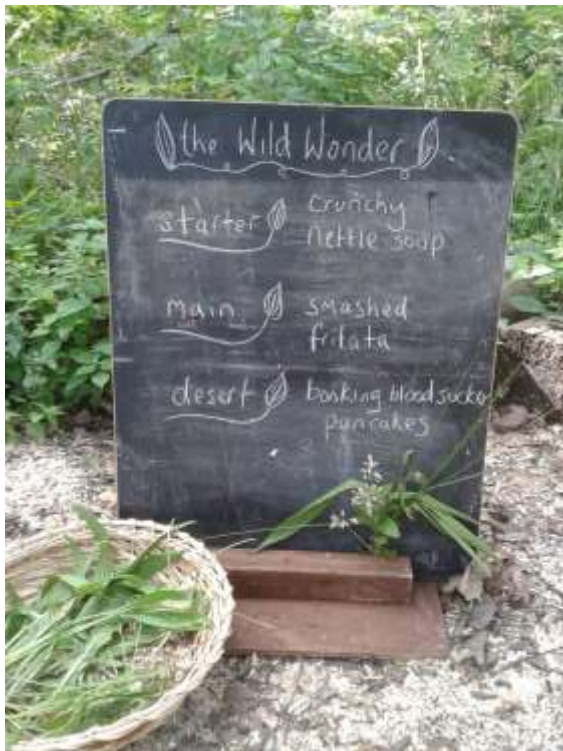 the Wild Wonder
starter
Crunchy
Nettle soup
main
smashed
fritata
desert
basking bloodsucker
pancakes